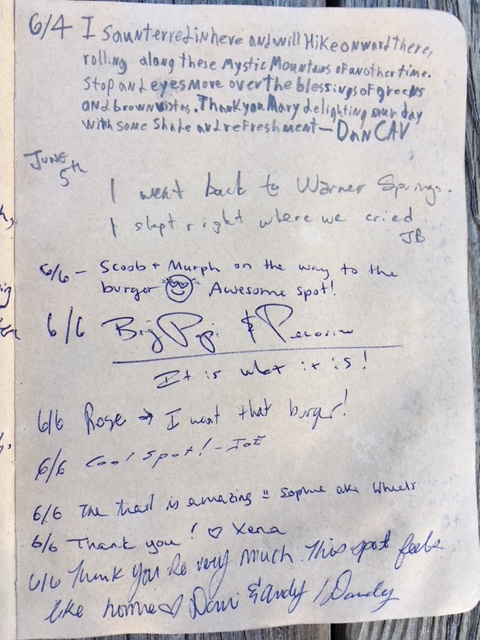 6/4 I saunterred in here and will Hike onward there,
rolling along these Mystic Mountains of another time.
Stop and eyes move over the blessings of greens
and brown vistas. Thank you Mary delighting our day
with some Shade and refreshment - Dan CAV
JUNE
5th
I went back to Warner Springs.
I slept right where we cried.
JB
6/6 - Scoob + Murph on the way to the
burger Awesome spot!
6/6 Big Papi &
It is what it is!
6/6 Rose → I want that burger!
6/6 Cool Spot! - JOE
6/6 The trail is amazing :) Sophie aka Wheels
6/6 Thank you! ♡ Xena
6/6 Thank you so very much. This spot feels
like home ♡ / Dandy